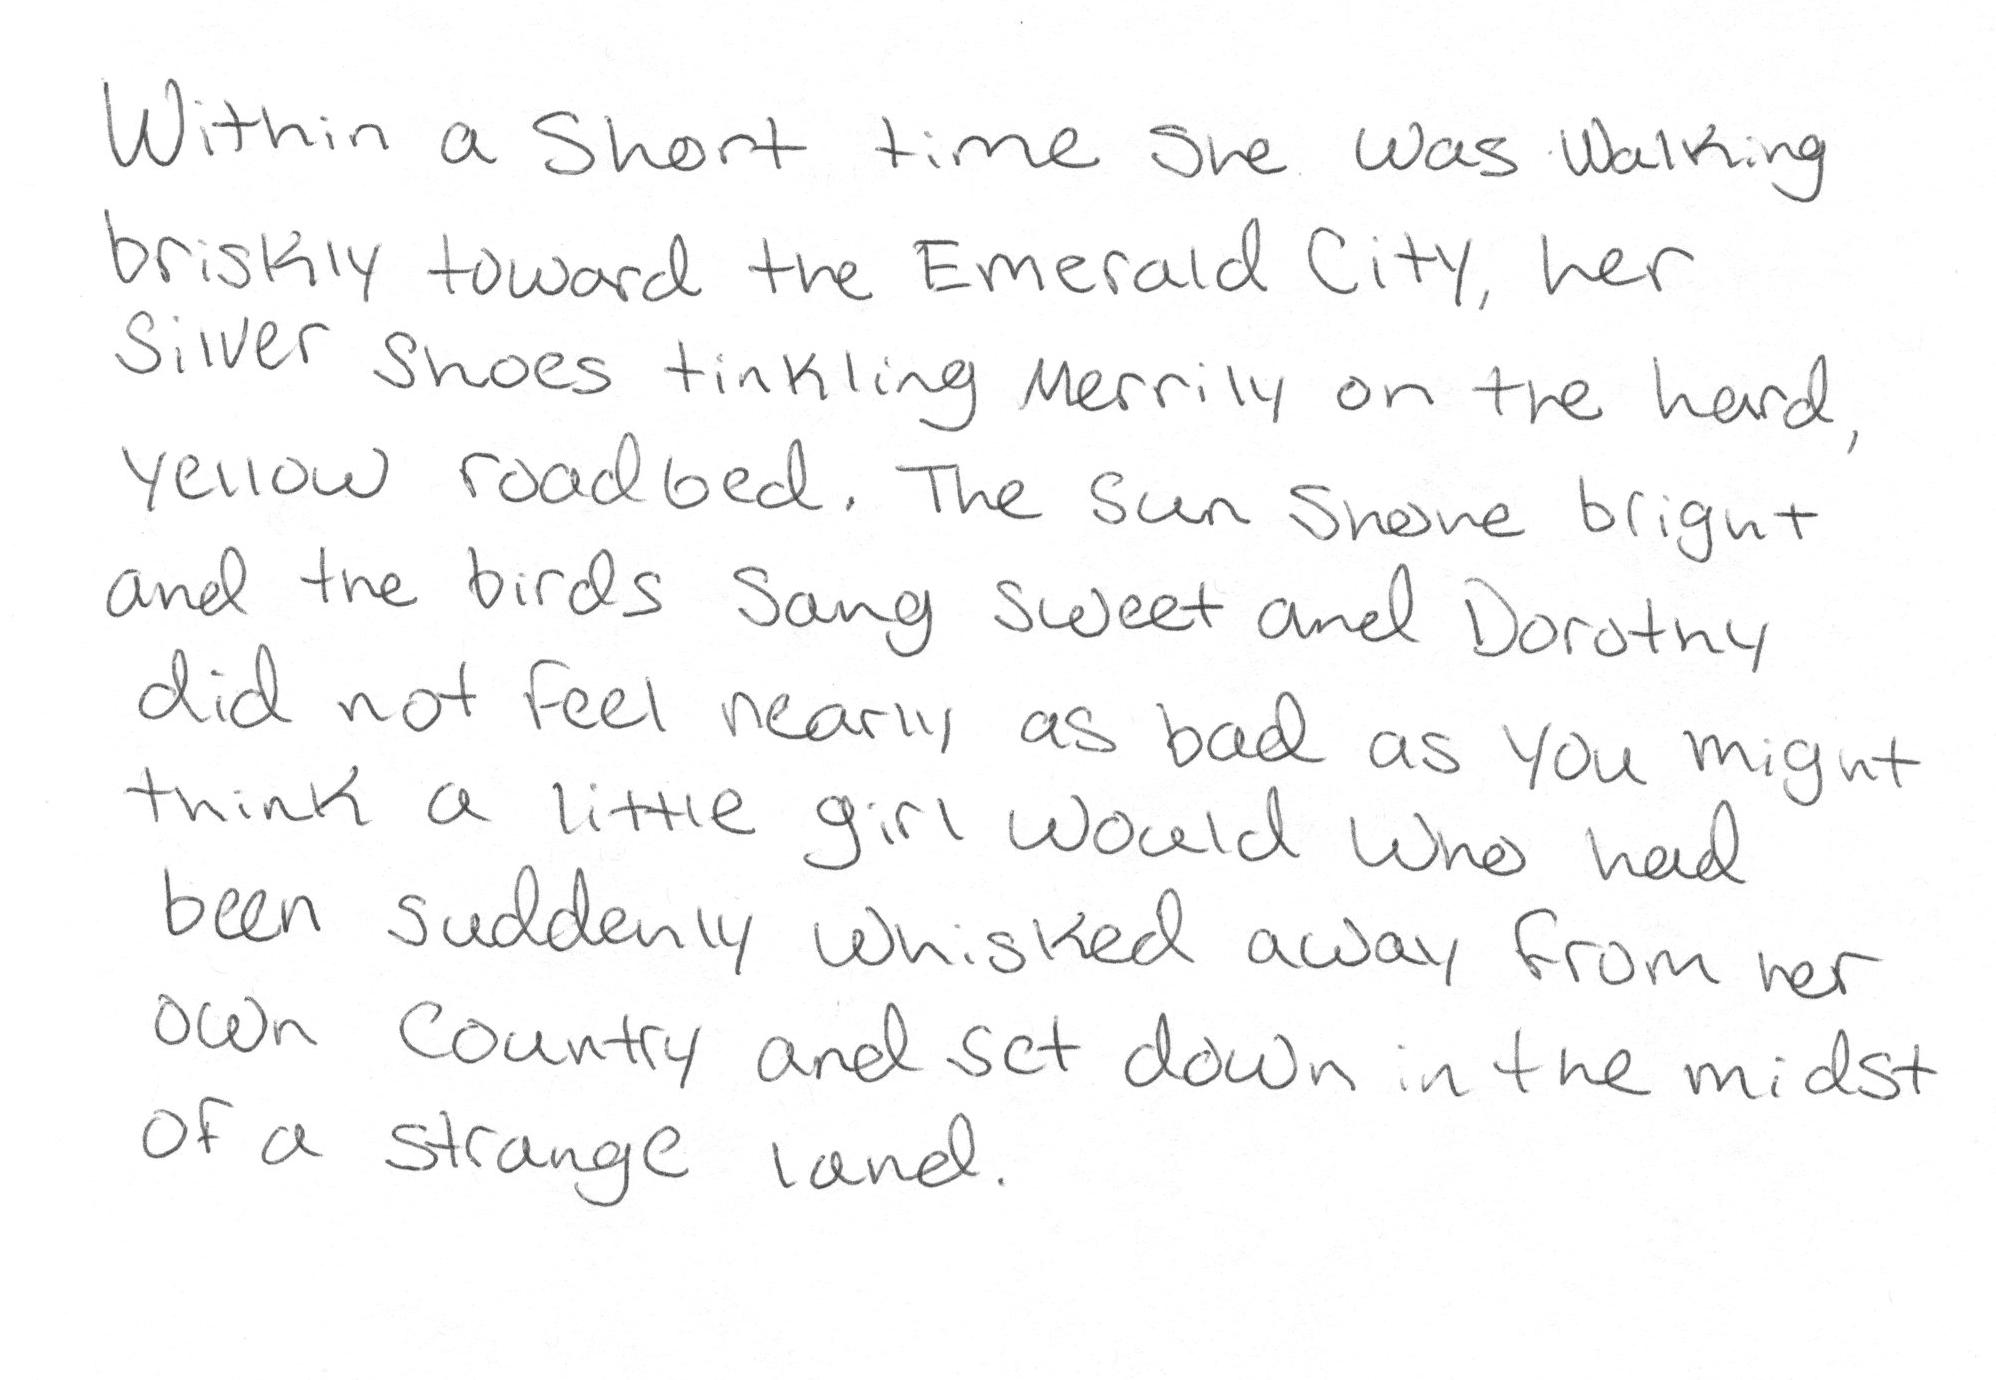 Within a short time she was walking
briskly toward the Emerald City, her
silver shoes tinkling merrily on the hard,
yellow roadbed. The sun shone bright
and the birds sang sweet and Dorothy
did not feel nearly as bad as you might
think a little girl would who had
been suddenly whisked away from her
own country and set down in the midst
of a strange land.